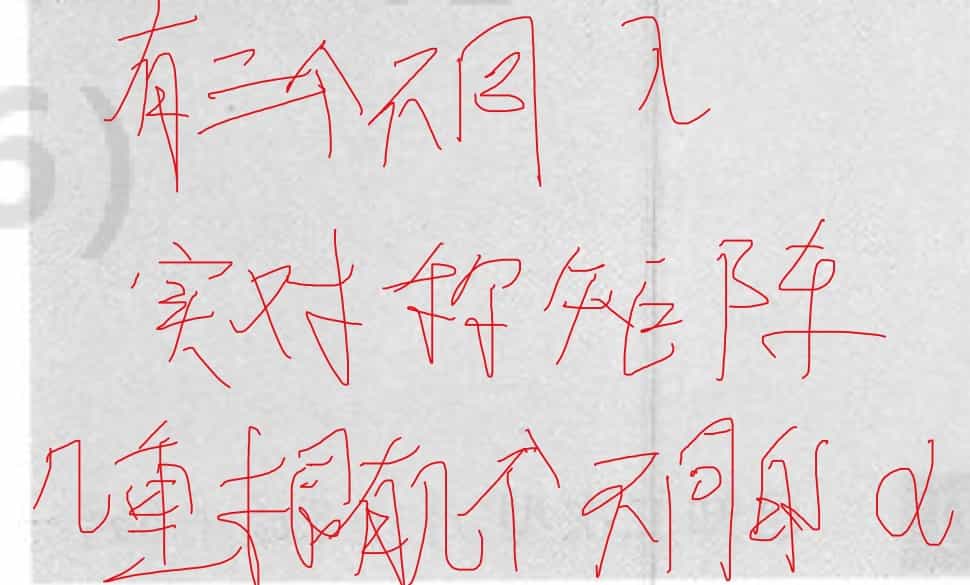 有三个不同 λ
实对称矩阵
几重根有几个不同的 α